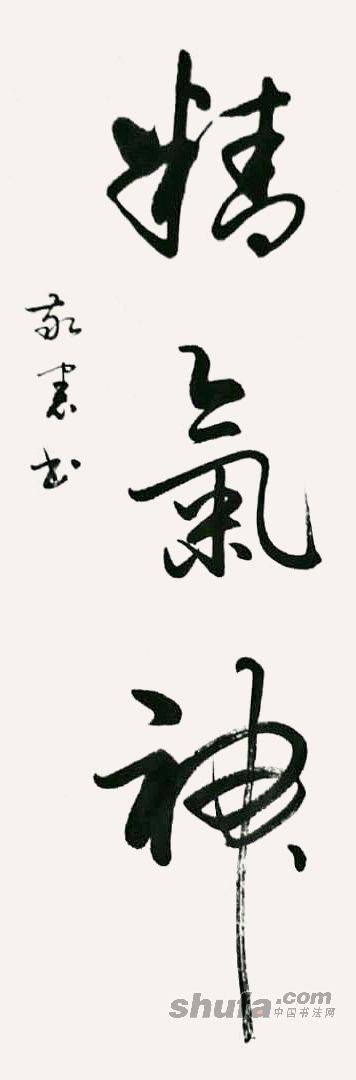 精氣神
敬憲书
shufa.com
中国书法网